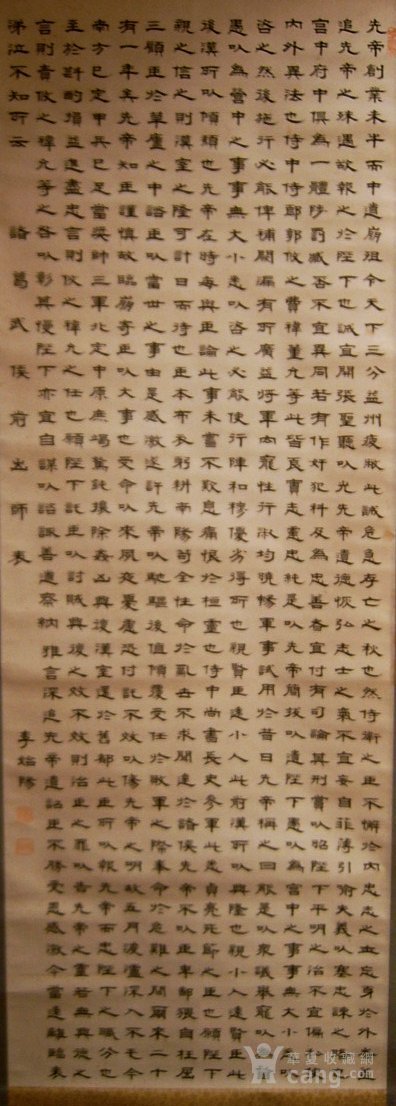 先帝創業未半而中道崩殂今天下三分益州疲敝此誠危急存亡之秋也然侍衛之臣不懈於內忠志之士忘身於外者蓋
追先帝之殊遇欲報之於陛下也誠宜開張聖聽以光先帝遺德恢弘志士之氣不宜妄自菲薄引喻失義以塞忠諫之路也
宮中府中俱為一體陟罰臧否不宜異同若有作奸犯科及為忠善者宜付有司論其刑賞以昭陛下平明之治不宜偏私使
內外異法也侍中侍郎郭攸之費褘董允等此皆良實志慮忠純是以先帝簡拔以遺陛下愚以為宮中之事事無大小悉以
咨之然後施行必能裨補闕漏有所廣益將軍向寵性行淑均曉暢軍事試用於昔日先帝稱之曰能是以眾議舉寵以為督
愚以為營中之事事無大小悉以咨之必能使行陣和穆優劣得所也親賢臣遠小人此前漢所以興隆也親小人遠賢臣此
後漢所以傾頹也先帝在時每與臣論此事未嘗不歎息痛恨於桓靈也侍中尚書長史參軍此悉貞亮死節之臣也願陛下
親之信之則漢室之隆可計日而待也臣本布衣躬耕南陽苟全性命於亂世不求聞達於諸侯先帝不以臣卑鄙猥自枉屈
三顧臣於草廬之中諮臣以當世之事由是感激遂許先帝以馳驅後值傾覆受任於敗軍之際奉命於危難之間爾來二十
有一年矣先帝知臣謹慎故臨崩寄臣以大事也受命以來夙夜憂慮恐付託不效以傷先帝之明故五月渡瀘深入不毛今
南方已定甲兵已足當獎帥三軍北定中原庶竭駑鈍攘除姦凶興復漢室還於舊都此臣所以報先帝而忠陛下之職分也
至於斟酌損益進盡忠言則攸之褘允之任也願陛下託臣以討賊興復之效不效則治臣之罪以告先帝之靈若無興德之
言則責攸之褘允等之咎以彰其慢陛下亦宜自謀以諮諏善道察納雅言深追先帝遺詔臣不勝受恩感激今當遠離臨表
涕泣不知所云 諸葛武侯前出師表
華夏收藏網
cang.com